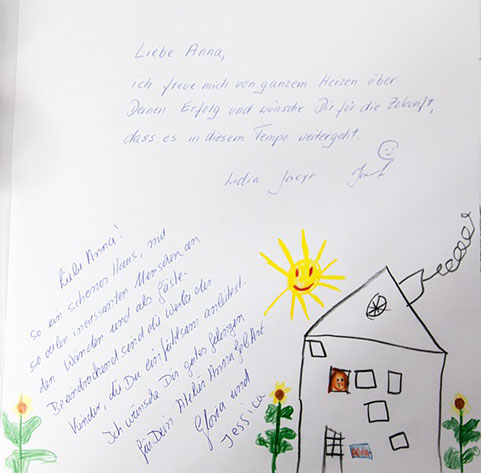 Liebe Anna,
ich freue mich von ganzem Herzen über
Deinen Erfolg und wünsche Dir für die Zukunft,
dass es in diesem Tempo weitergeht.
Lidia
Liebe Anna!
so ein schönes Haus, mit
so vielen interessanten Menschen an
den Wänden und als Gäste.
Beeindruckend sind die Werke der
Kinder, die Du einfühlsam anleitest.
Ich wünsche Dir gutes Gelingen
für Dein Atelier Anna
Gloria und
Jessica